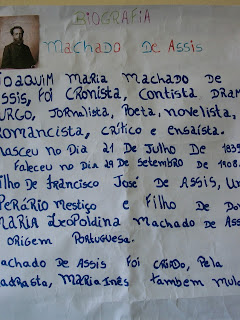 BIOGRAFIA
Machado De Assis
Joaquim Maria Machado De
Assis, Foi Cronista, Contista Dram
urgo, Jornalista, Poeta, novelista,
Romancista, Crítico e Ensaísta.
Nasceu no Dia 21 De Julho De 1839
Faleceu no Dia 29 De Setembro De 1908.
Filho De Francisco José De Assis, Um
Perário Mestiço e Filho De Don
Maria Leopoldina Machado De Ass
Origem Portuguesa.
achado De Assis Foi Criado, Pela
adrasta, Maria Inês Também Mula